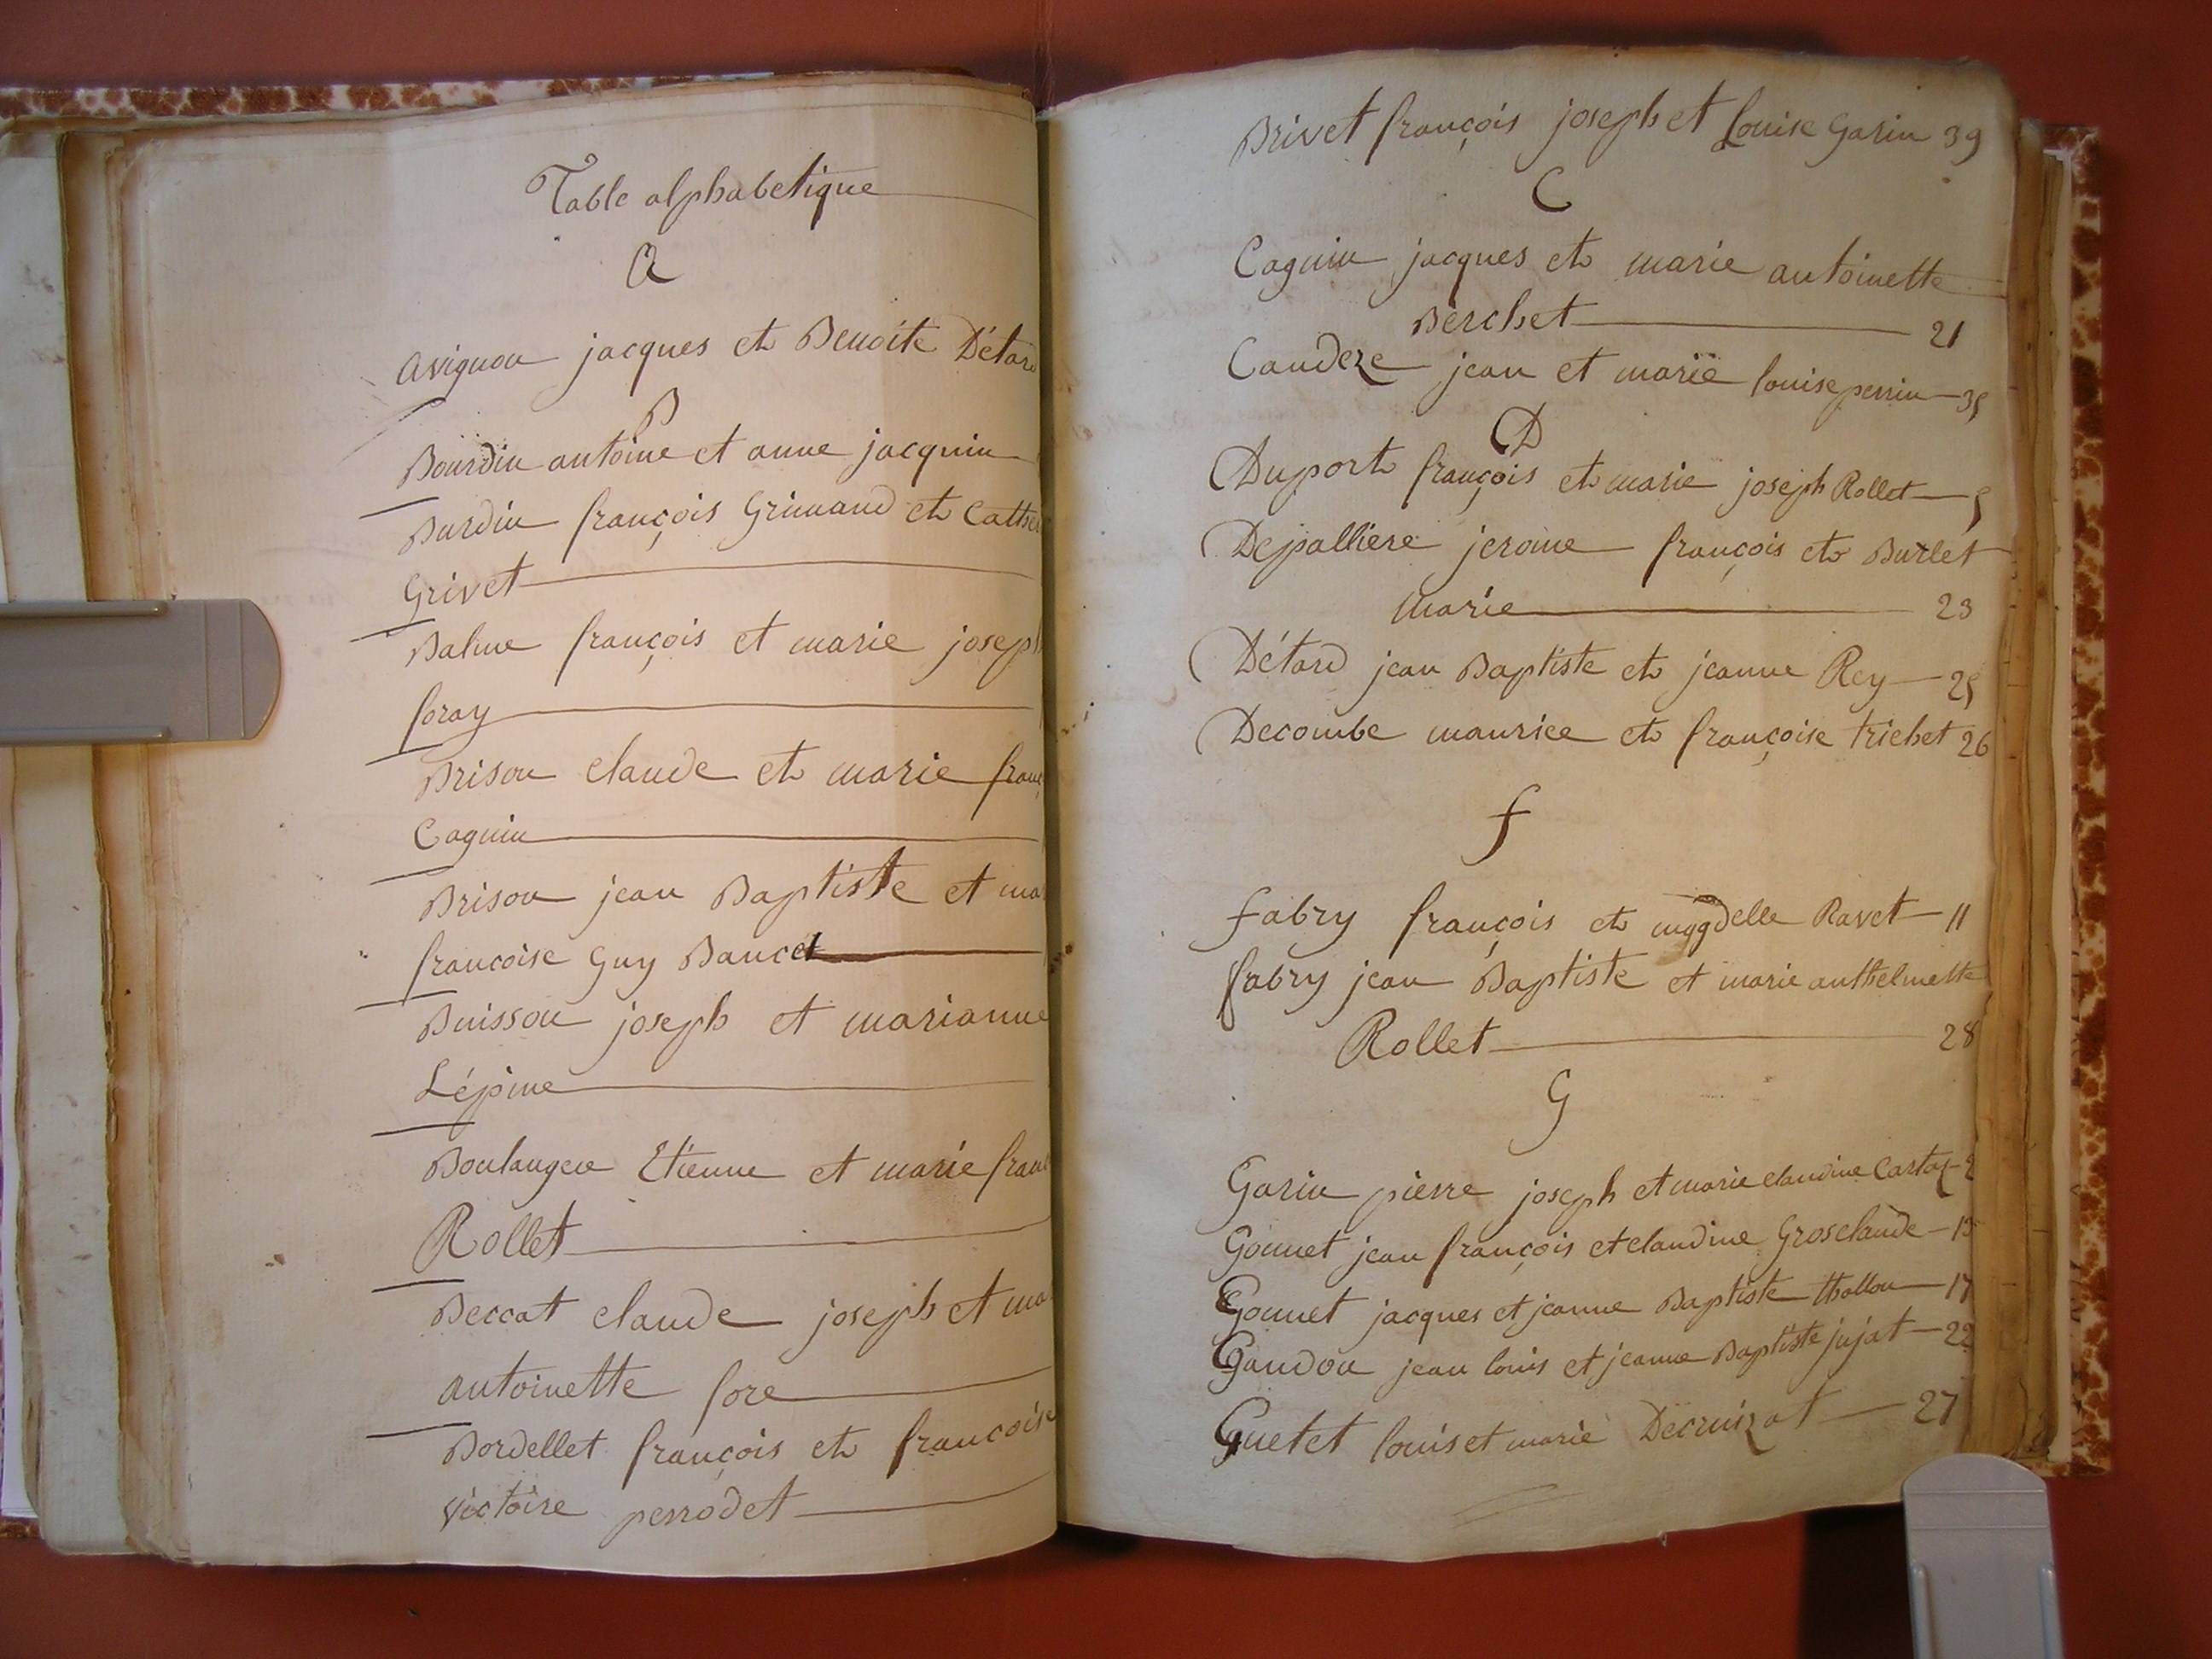 Table alphabetique
A
avignon jacques et Benoite Détard
B
Bourdin antoine et anne jacquin
Burdin françois Grimand et Cathe
Grivet
Balme françois et marie joseph
foray
Brison claude et marie franç
Cagnin
Brison jean Baptiste et ma
francoise Guy Bancel
Buisson joseph et marianne
Lépine
Boulangee Etienne et marie fran
Rollet
Beccat claude joseph et ma
antoinette fore
Bordellet françois et francoise
victoire perrodet
Brivet françois joseph et Louise Garin 39
C
Cagnin jacques et marie antoinette
Berchet 21
Candeze jean et marie louise perrin 35
D
Duport françois et marie joseph Rollet 5
Depalliere jerome françois et Burlet
marie 23
Détard jean Baptiste et jeanne Rey 25
Decombe maurice et françoise trichet 26
f
fabry françois et mggdelle Ravet 11
fabry jean Baptiste et marie anthelmette
Rollet 28
G
Garin pierre joseph et marie claudine Cartaz 2
Gonnet jean françois et claudine Grosclaude 15
Gonnet jacques et jeanne Baptiste thollon 17
Gandon jean louis et jeanne Baptiste jujat 22
Guetet louis et marie Decruizat 27